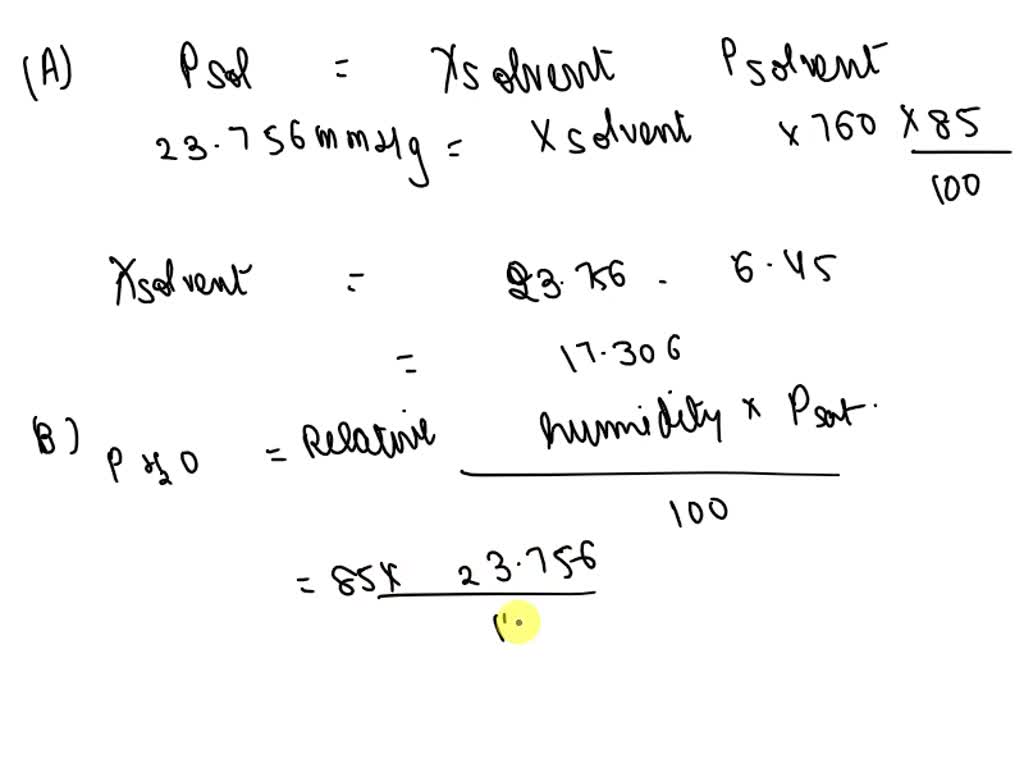 (A) Psol = Xsolvent Psolvent
23.756mmHg = Xsolvent × 760 × 85
100
Xsolvent = 23.756 - 6.45
= 17.306
B) PH2O = Relative humidity × Psat.
100
= 85× 23.756
1